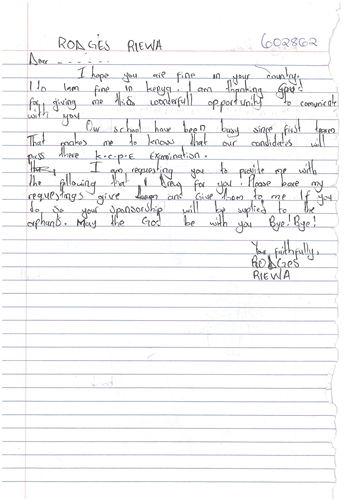 RODGES RIEWA 602862
Dear ------
I hope you are fine in your country.
I to iam fine in kenya. I am thanking God
for giving me this wonderfull opportunity to comunicate
with you
Our school have been busy since first
That makes me to know that our candidates will
pass there k.c.p.E Examination.
I am requesting you to provide me with
the following that I for you. Please bare my
requestings give and Give them to me If you
do so your sponsorship will be suplied to the
orphans. May the God be with you Bye! Bye!
Your faithfully,
RODGES
RIEWA